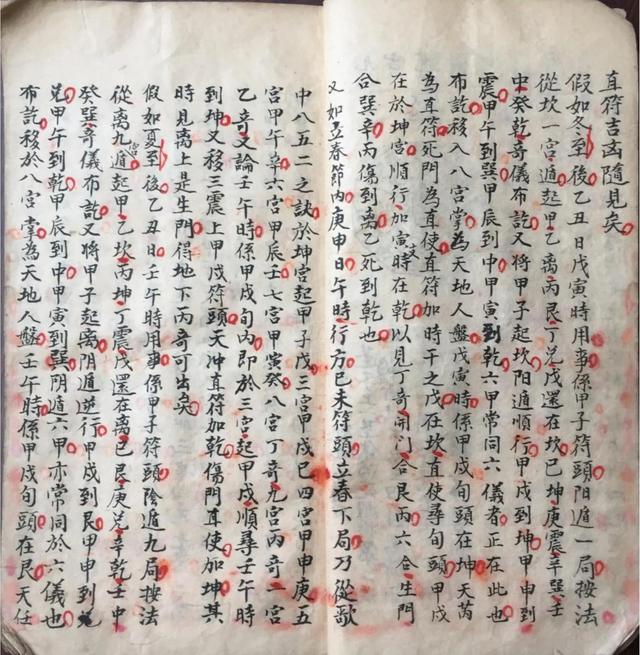 直符吉凶隨見矣
假如冬至後乙丑日戊寅時用事係甲子符頭阳遁一局按法
從坎一宮遁起甲乙離丙艮丁兑戊還在坎巳坤庚震辛巽壬
中癸乾奇儀布訖又將甲子起坎阳遁順行甲戌到坤甲申到
震甲午到巽甲辰到中甲寅到乾六甲常同六儀者正在此也
布訖移入八宮掌為天地人盤戊寅時係甲戌旬頭在坤天芮
為直符死門為直使直符加時干之戊在坎直使尋旬頭甲戌
在於坤宮順行加寅時在乾以見丁奇開门合艮丙六合生門
合巽辛丙傷到離乙死到乾也
又如立春節内庚申日午時行方巳未符頭立春下局乃從歌
中八五二之訣於坤宮起甲子戊三宮甲戌巳四宮甲申庚五
宮甲午辛六宮甲辰壬七宮甲寅癸八宮丁奇九宮丙奇二宮
乙奇又論壬午時係甲戌旬内即於三宮起甲戌順尋壬午時
到坤又移三震上甲戌符頭天沖直符加乾傷門直使加坤其
時見離上是生門得地下丙奇可出矣
假如夏至後乙丑日壬午時用事係甲子符頭陰遁九局按法
從離九宮遁起甲乙坎丙坤丁震戊還在離巳艮庚兑辛乾壬中
癸巽奇儀布訖又將甲子起離阴遁逆行甲戌到艮甲申到兑
甲午到乾甲辰到中甲寅到巽阴遁六甲亦常同於六儀也
布訖移於八宮掌為天地人盤壬午時係甲戌旬頭在艮天任